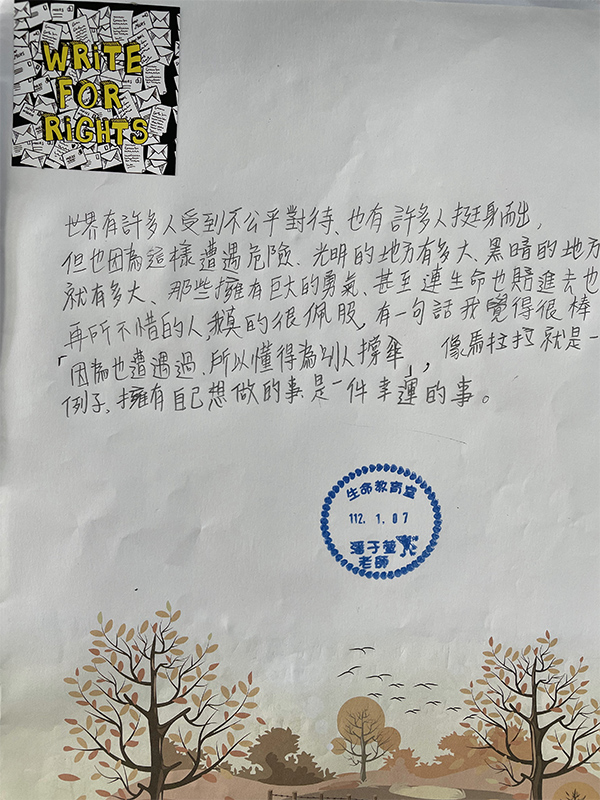 WRiTE
FOR
RiGHTS
世界有許多人受到不公平對待、也有許多人挺身而出,
但也因為這樣遭遇危險、光明的地方有多大、黑暗的地方
就有多大、那些擁有巨大的勇氣、甚至連生命也賠進去也
再所不惜的人,我真的很佩服,有一句話我覺得很棒
「因為也遭遇過、所以懂得為別人撐傘」,像馬拉拉就是一
例子、擁有自己想做的事是一件幸運的事。
生命教育室
112. 1. 07
潘子莹
老師